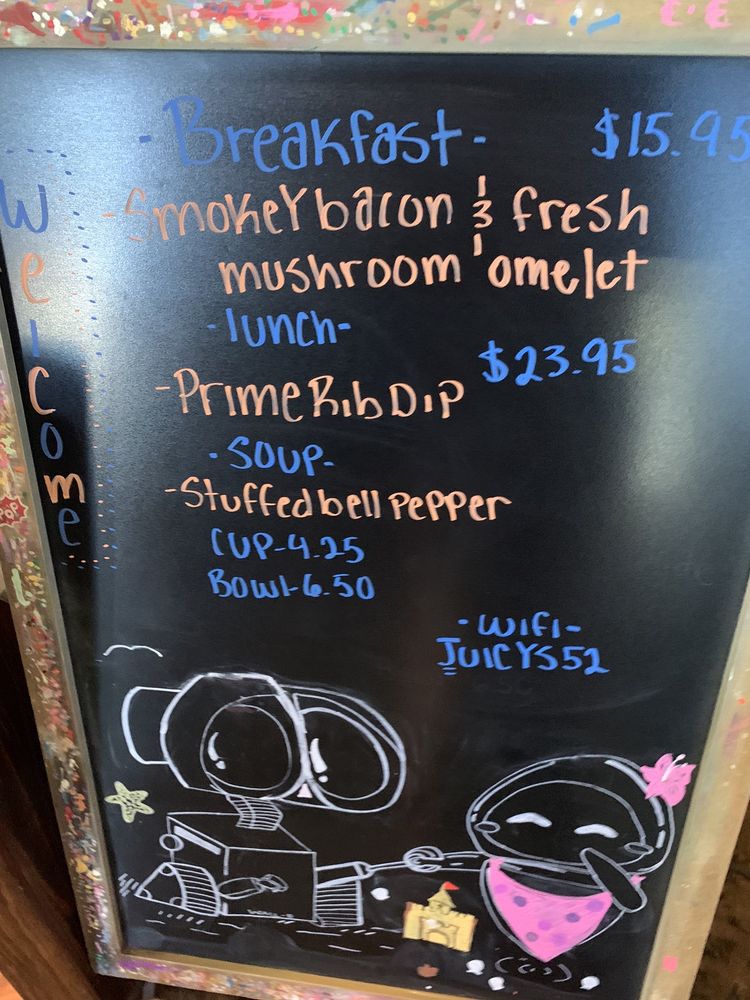 -Breakfast- $15.95
-Smokey bacon & fresh
mushroom omelet
-lunch-
$23.95
-Prime Rib Dip
-SOUP-
-Stuffed bell Pepper
CUP-4.25
Bowl-6.50
-Wifi-
JUICYS52
Welcome
POP